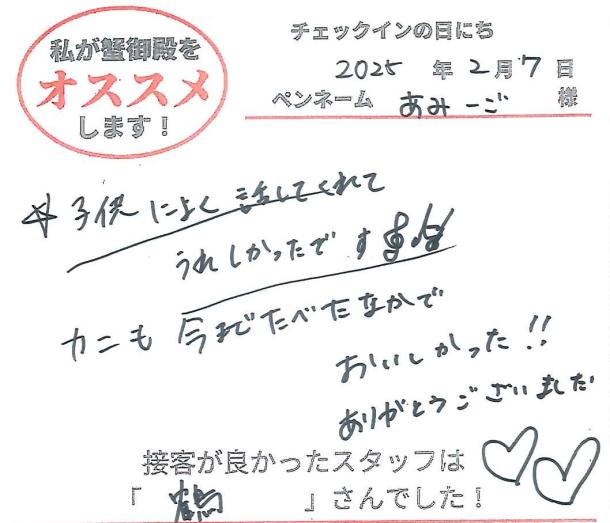 私が蟹御殿を
オススメ
します！
チェックインの日にち
2025 年 2月 7 日
ペンネーム あみーご 様
☆子供によく話してくれて
うれしかったです
カニも今までたべたなかで
おいしかった!!
ありがとうございました
接客が良かったスタッフは
「 鶴 」さんでした！